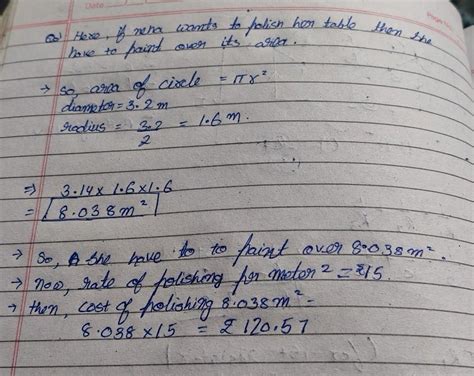 Date
Page No.
Q) Here, if neha wants to polish her table then she
have to paint over its area.
→ So, area of circle = πr²
diameter = 3.2 m
radius = 3.2/2 = 1.6 m.
⇒ 3.14 x 1.6 x 1.6
= 8.038 m²
→ So, she have to to paint over 8.038 m².
→ now, rate of polishing per meter² = ₹15
→ then, cost of polishing 8.038 m² =
8.038 x 15 = ₹ 120.57